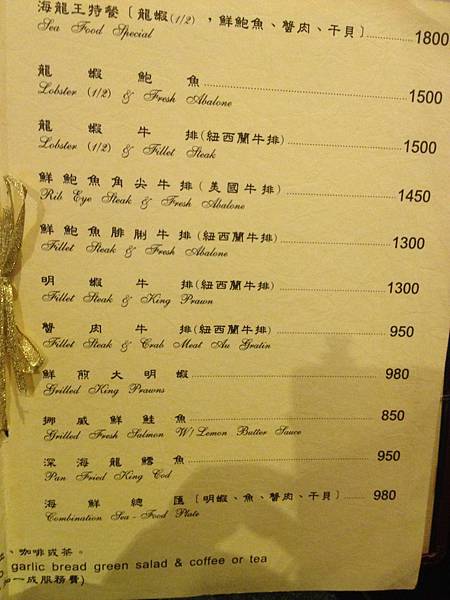 海龍王特餐〔龍蝦(1/2)，鮮鮑魚、蟹肉、干貝〕..........1800
Sea Food Special
龍蝦鮑魚..........1500
Lobster (1/2) & Fresh Abalone
龍蝦牛排(紐西蘭牛排)..........1500
Lobster (1/2) & Fillet Steak
鮮鮑魚角尖牛排(美國牛排)..........1450
Rib Eye Steak & Fresh Abalone
鮮鮑魚腓刪牛排(紐西蘭牛排)..........1300
Fillet Steak & Fresh Abalone
明蝦牛排(紐西蘭牛排)..........1300
Fillet Steak & King Prawn
蟹肉牛排(紐西蘭牛排)..........950
Fillet Steak & Crab Meat Au Gratin
鮮煎大明蝦..........980
Grilled King Prawns
挪威鮮鮭魚..........850
Grilled Fresh Salmon W/Lemon Butter Sauce
深海龍鱈魚..........950
Pan Fried King Cod
海鮮總匯〔明蝦、魚、蟹肉、干貝〕..........980
Combination Sea-Food Plate
、咖啡或茶。
garlic bread green salad & coffee or tea
一成服務費)